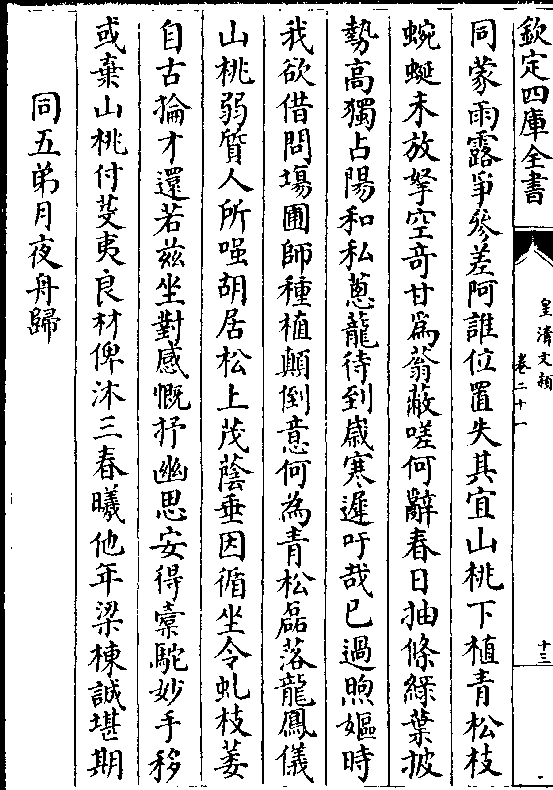 欽定四庫全書
皇清文穎
卷二十一
十三
同蒙雨露爭參差阿誰位置失其宜山桃下植青松枝
蜿蜒未放拏空奇甘為蓊蔽嗟何辭春日抽條綠葉披
勢高獨占陽和私蔥蘢待到歲寒遲吁哉已過煦嫗時
我欲借問場圃師種植顛倒意何為青松磊落龍鳳儀
山桃弱質人所嗤胡居松上茂蔭垂因循坐令虬枝萎
自古掄才還若茲坐對感慨抒幽思安得橐駝妙手移
或棄山桃付芟夷良材俾沐三春曦他年梁棟誠堪期
同五弟月夜舟歸